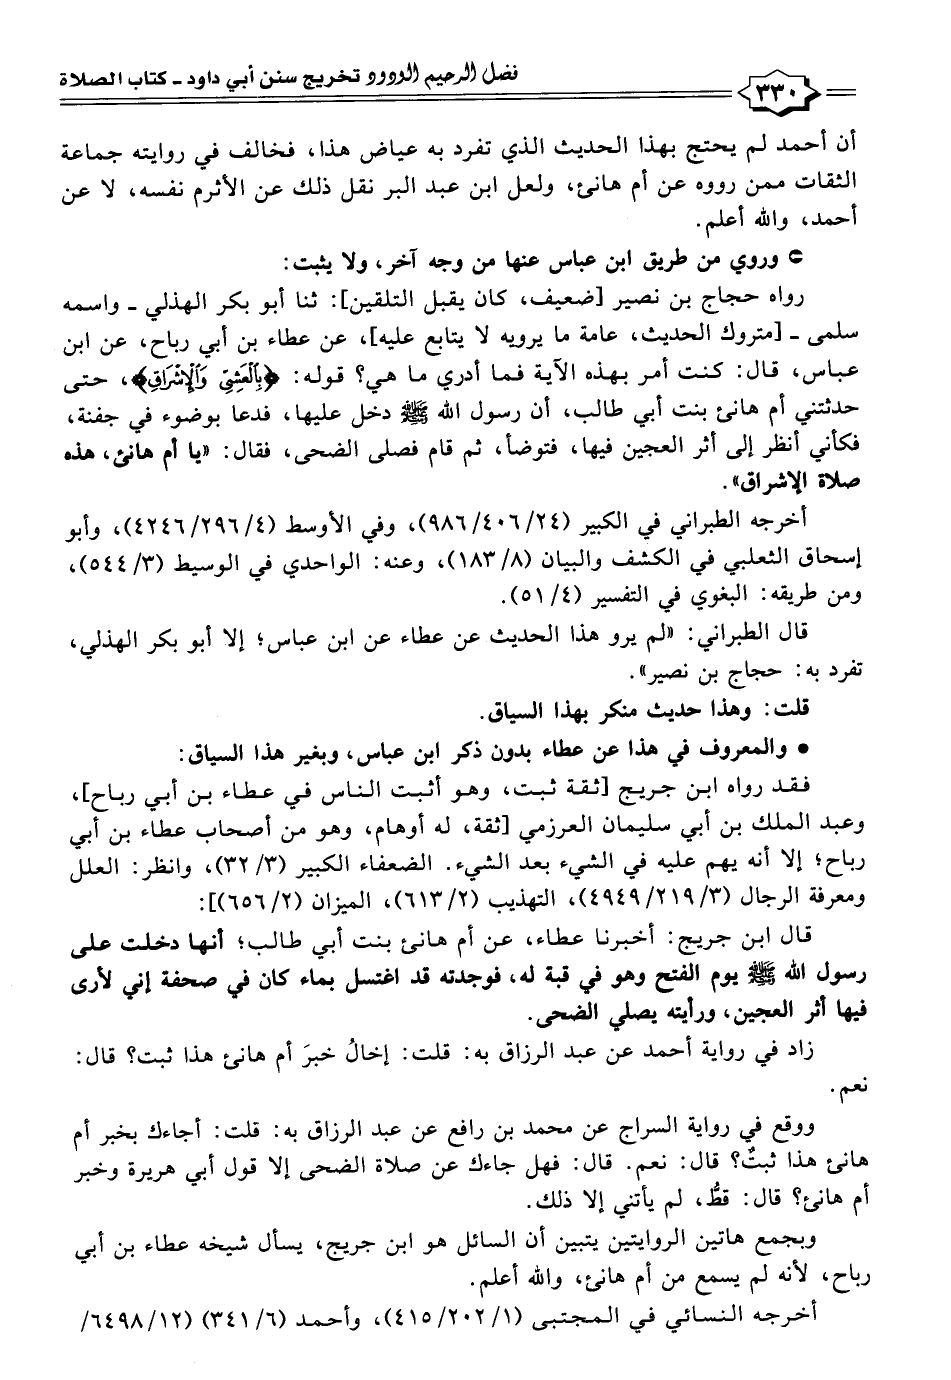 فضل الرحيم الودود تخريج سنن أبي داود - كتاب الصلاة
٣٣٠
أن أحمد لم يحتج بهذا الحديث الذي تفرد به عياض هذا، فخالف في روايته جماعة
الثقات ممن رووه عن أم هانئ، ولعل ابن عبد البر نقل ذلك عن الأثرم نفسه، لا عن
أحمد، والله أعلم.
وروي من طريق ابن عباس عنها من وجه آخر، ولا يثبت:
رواه حجاج بن نصير [ضعيف، كان يقبل التلقين]: ثنا أبو بكر الهذلي - واسمه
سلمى - [متروك الحديث، عامة ما يرويه لا يتابع عليه]، عن عطاء بن أبي رباح، عن ابن
عباس، قال: كنت أمر بهذه الآية فما أدري ما هي؟ قوله: ﴿بِالْعَشِيِّ وَالْإِشْرَاقِ﴾، حتى
حدثتني أم هانئ بنت أبي طالب، أن رسول الله ﷺ دخل عليها، فدعا بوضوء في جفنة،
فكأني أنظر إلى أثر العجين فيها، فتوضأ، ثم قام فصلى الضحى، فقال: «يا أم هانئ، هذه
صلاة الإشراق».
أخرجه الطبراني في الكبير (٢٤/ ٤٠٦/ ٩٨٦)، وفي الأوسط (٤/ ٢٩٦/ ٤٢٤٦)، وأبو
إسحاق الثعلبي في الكشف والبيان (٨/ ١٨٣)، وعنه: الواحدي في الوسيط (٣/ ٥٤٤)،
ومن طريقه: البغوي في التفسير (٤/ ٥١).
قال الطبراني: «لم يرو هذا الحديث عن عطاء عن ابن عباس؛ إلا أبو بكر الهذلي،
تفرد به: حجاج بن نصير».
قلت: وهذا حديث منكر بهذا السياق.
• والمعروف في هذا عن عطاء بدون ذكر ابن عباس، وبغير هذا السياق:
فقد رواه ابن جريج [ثقة ثبت، وهو أثبت الناس في عطاء بن أبي رباح]،
وعبد الملك بن أبي سليمان العرزمي [ثقة، له أوهام، وهو من أصحاب عطاء بن أبي
رباح؛ إلا أنه يهم عليه في الشيء بعد الشيء. الضعفاء الكبير (٣/ ٣٢)، وانظر: العلل
ومعرفة الرجال (٣/ ٢١٩/ ٤٩٤٩)، التهذيب (٢/ ٦١٣)، الميزان (٢/ ٦٥٦)]:
قال ابن جريج: أخبرنا عطاء، عن أم هانئ بنت أبي طالب؛ أنها دخلت على
رسول الله ﷺ يوم الفتح وهو في قبة له، فوجدته قد اغتسل بماء كان في صحفة إني لأرى
فيها أثر العجين، ورأيته يصلي الضحى.
زاد في رواية أحمد عن عبد الرزاق به: قلت: إخالُ خبرَ أم هانئ هذا ثبت؟ قال:
نعم.
ووقع في رواية السراج عن محمد بن رافع عن عبد الرزاق به: قلت: أجاءك بخبر أم
هانئ هذا ثبتٌ؟ قال: نعم. قال: فهل جاءك عن صلاة الضحى إلا قول أبي هريرة وخبر
أم هانئ؟ قال: قطُّ، لم يأتني إلا ذلك.
وبجمع هاتين الروايتين يتبين أن السائل هو ابن جريج، يسأل شيخه عطاء بن أبي
رباح، لأنه لم يسمع من أم هانئ، والله أعلم.
أخرجه النسائي في المجتبى (١/ ٢٠٢/ ٤١٥)، وأحمد (٦/ ٣٤١) (١٢/ ٦٤٩٨/